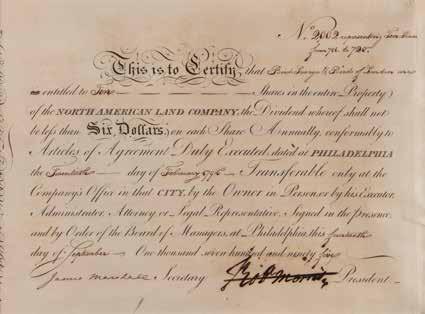 No. 2002 representing Ten Shares
from 711 to 720.
This is to Certify, that Bird Savage & Bird of London are
entitled to Ten Shares in the entire Property
of the NORTH AMERICAN LAND COMPANY, the Dividend whereof shall not
be less than Six Dollars, on each Share Annually, conformably to
Articles of Agreement Duly Executed, dated at PHILADELPHIA
the Twentieth day of February 1795 Transferable only at the
Company's Office in that CITY, by the Owner in Person or by his Executor,
Administrator, Attorney or Legal Representative. Signed in the presence,
and by Order of the Board of Managers, at Philadelphia, this
day of September One thousand seven hundred and ninety five
James Marshall Secretary Robt Morris President